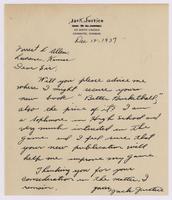 Jack Justice
Dec 12-1937
Forrest C. Allen
Lawrence, Kansas
Dear Sir,
Will you please advise me
where I might secure your
new book "Better Basketball",
also the price of it. I am
a sophmore in High School and
very much interested in the
game and I feel sure that
your new publication will
help me improve my game.
Thanking you for your
consideration in the matter, I
remain.
yours,
Jack Justice